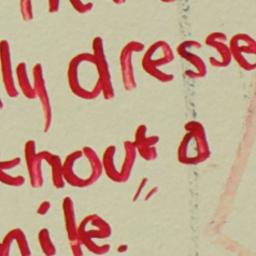 ly dresse
thout a
mile."